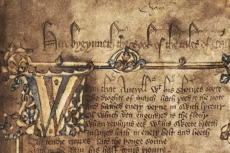 Here bygynneth the book of the tales of
Whan that Aueryll wt his shoures soote
The droghte of March hath perced to the roote
And bathed euery veyne in swich lycour
Of which vertu engendred is the flour
Whan Zephirus eek with his sweete breeth
Inspired hath in euery holt and heeth
The tendre croppes and the yonge sonne
Hath in the Ram his half cours yronne